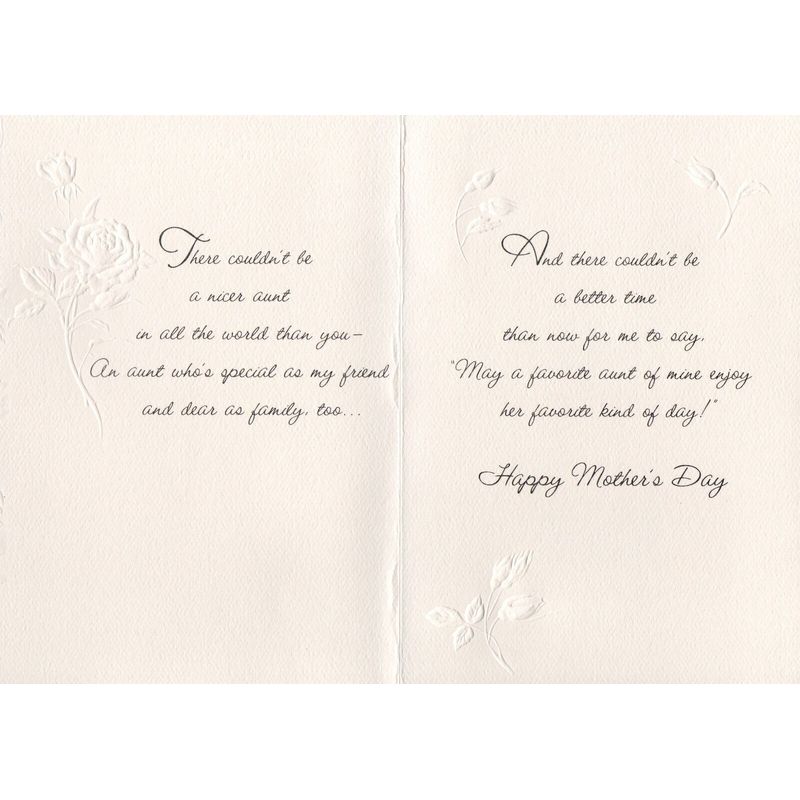 There couldn't be
a nicer aunt
in all the world than you—
An aunt who's special as my friend
and dear as family, too...
And there couldn't be
a better time
than now for me to say,
"May a favorite aunt of mine enjoy
her favorite kind of day!"
Happy Mother's Day